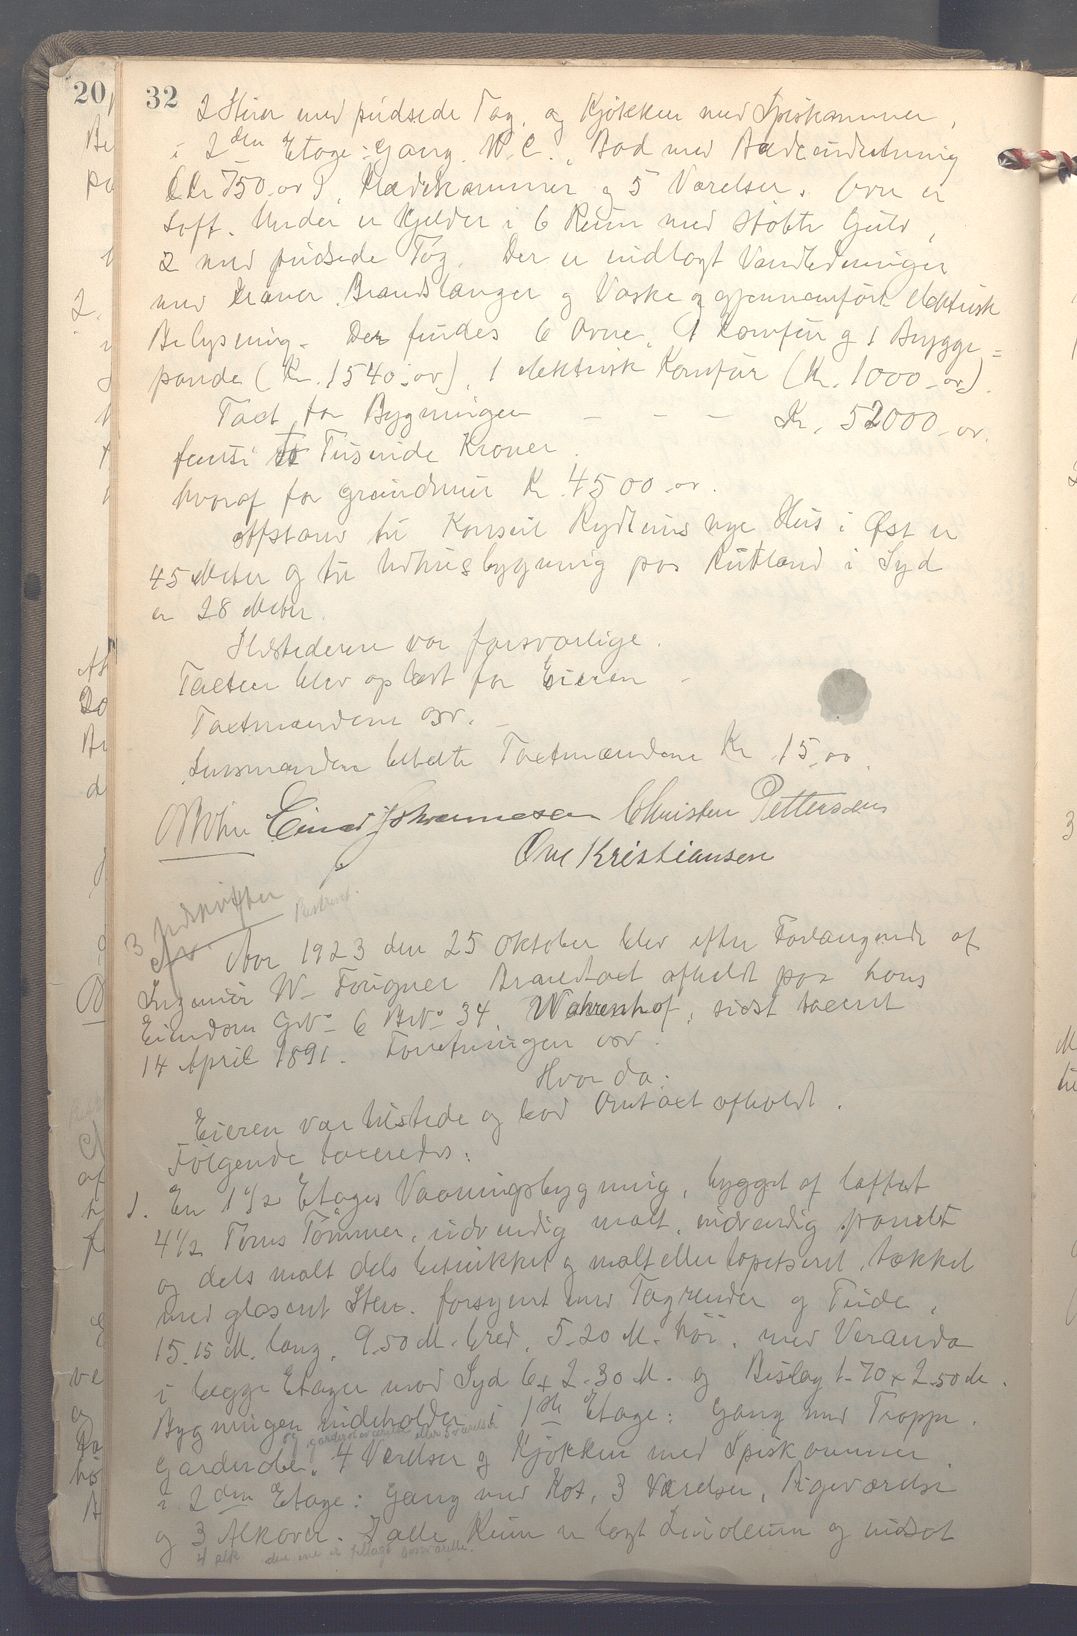 32
2 Stuer med pudsede Tag, og Kjökken med Spiskammer,
i 2den Etage: Gang. W.C., Bad med Badeindretning
(Kr 750.oo), Klædekammer og 5 Værelser. Over er
Loft. Under er Kjelder i 6 Rum med stöbte Gulv,
2 med pudsede Tag. Der er indlagt Vandledninger
med Kraner, Brandslanger og Vaske og gjennemfört elektrisk
Belysning. Der findes 6 Ovne, 1 Komfur og 1 Brygge=
pande (Kr. 1540.oo), 1 elektrisk Komfur (Kr. 1000.oo).
Taxt for Bygningen - - - Kr. 52000.oo.
femti to Tusinde Kroner.
hvoraf for Grundmur Kr. 4500.oo.
Afstand til Konsul Rydlems nye Hus i Öst er
45 Meter og til Udhusbygning paa Rutland i Syd
er 28 Meter.
Ildstederne var forsvarlige.
Taxten blev oplæst for Eieren -
Taxtmændene osv. -
Lensmanden betalte Taxtmændene Kr 15.oo.
Einar Johannesen Christen Pettersen
Ove Kristiansen
3 Udskrifter
Aar 1923 den 25 Oktober blev efter Forlangende af
Ingeniör W. Fougner Brandtaxt afholdt paa hans
Eiendom GNo 6 BNo 34, Wahrenhof, sidst taxert
14 April 1891. Forretningen osv.
Hvor da:
Eieren var tilstede og bad Omtaxt afholdt.
Fölgende taxeredes:
1. En 1 1/2 Etages Vaaningsbygning, bygget af laftet
4 1/2 Toms Tömmer, udvendig malt, indvendig panelt
og dels malt dels betrukket og malt eller tapetseret, tækket
med glasert Sten. forsynt med Tagrender og Tude,
15.15 M. lang, 9.50 M. bred, 5.20 M. höi, med Veranda
i begge Etager mod Syd 6 x 2.30 M. og Bislag 1.70 x 2.50 M.
Bygningen indeholder i 1ste Etage: Gang med Trappe,
Garderobe, 4 Værelser og Kjökken med Spiskammer
i 2den Etage: Gang med Kot, 3 Værelser, Pigeværelse
og 3 Alkover. I alle Rum er lagt Linoleum og indsat